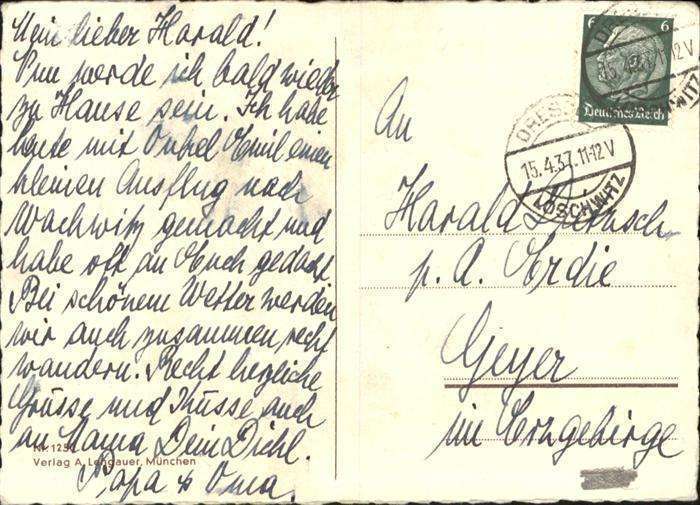 Mein lieber Harald!
Nun werde ich bald wieder
zu Hause sein. Ich habe
heute mit Onkel Emil einen
kleinen Ausflug nach
Wachwitz gemacht und
habe oft an Euch gedacht
Bei schönem Wetter werden
wir auch zusammen recht
wandern. Recht herzliche
Grüsse und Küsse auch
an Mama Dein Dichl.
Papa & Oma.
Nr. 125
Verlag A. Lengauer, München
6 6
Deutsches Reich
15.4.37.11-12V
DRES
15.4.37.11-12V
LOSCHWITZ
An
Harald
p. A. Erdie
Geyer
im Erzgebirge